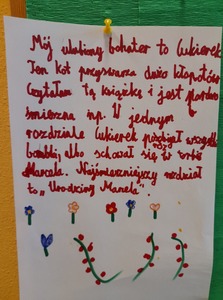 Mój ulubiony bohater to Cukierek
Ten kot przysparza dużo kłopotów
Czytałam tą książkę i jest bardzo
śmieszna np. W jednym
rozdziale Cukierek pozbijał wszystkie
bombki, albo schował się w torbie
Marcela. Najśmieszniejszy rozdział
to „Urodziny Marcela”.